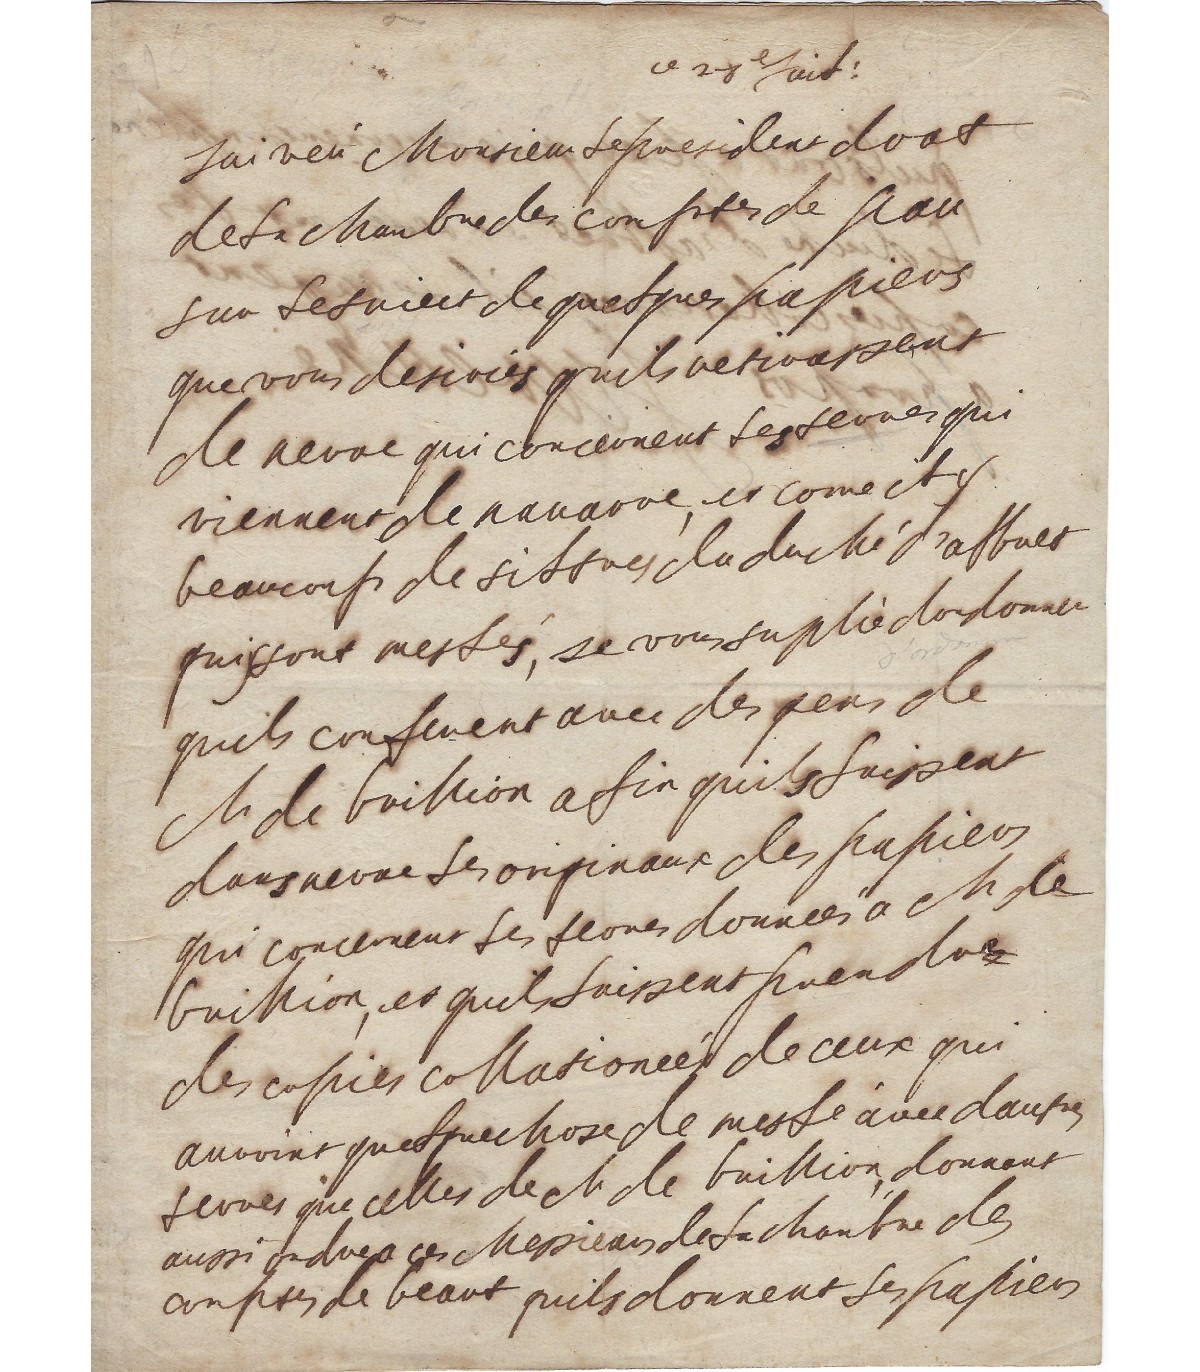 ce 28e Juil:
Jai veü Monsieur le president doat
de la Chambre des comptes de pau
sur le suiect de quelques papiers
que vous desiriés quils retirassent
de nerac qui concernent les terres qui
viennent de nauarre, et come il y
beaucoup de tiltres du duché d'albret
qui sont meslés, je vous suplie dordonner
quils conferent avec des gens de
M de buillion afin quils laissent
dans nerac les originaux des papiers
qui concernent les terres données a M de
buillion, et quils laissent prendre
des copies collasionées de ceux qui
auroint quelque chose de meslé avec dautres
terres que celles de M de buillion, donnant
aussi ordre a ces Messieurs de la chambre des
comptes de beant quils donnent les papiers